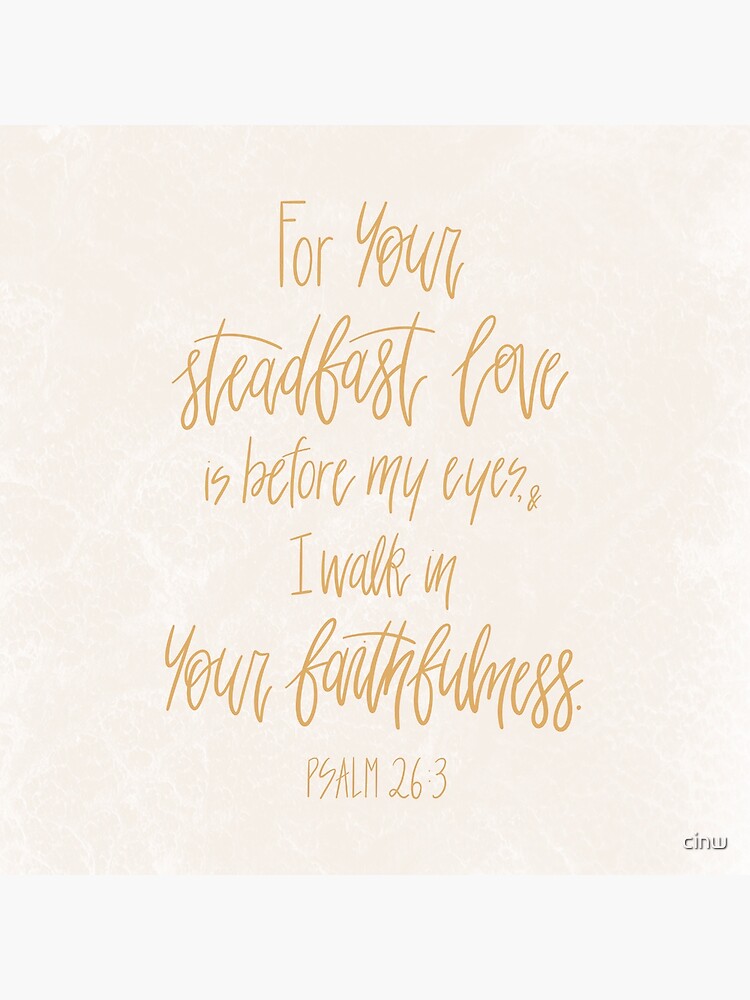 For Your
steadfast love
is before my eyes, &
I walk in
Your faithfulness.
PSALM 26:3
cinw